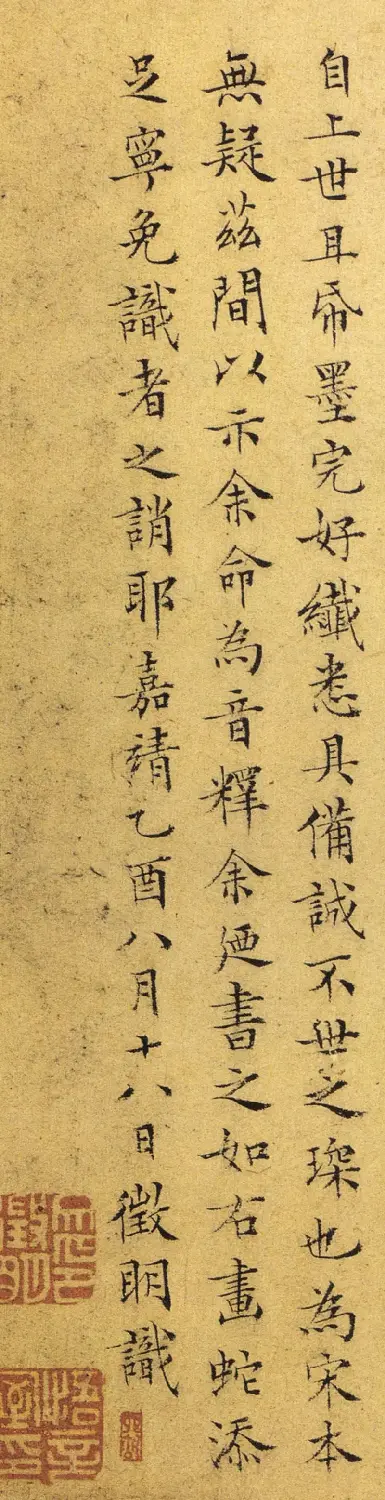 自上世且帋墨完好纖悉具備誠不世之琛也為宋本
無疑茲間以示余命為音釋余廼書之如右畫蛇添
足寧免識者之誚耶嘉靖乙酉八月十八日徵明識